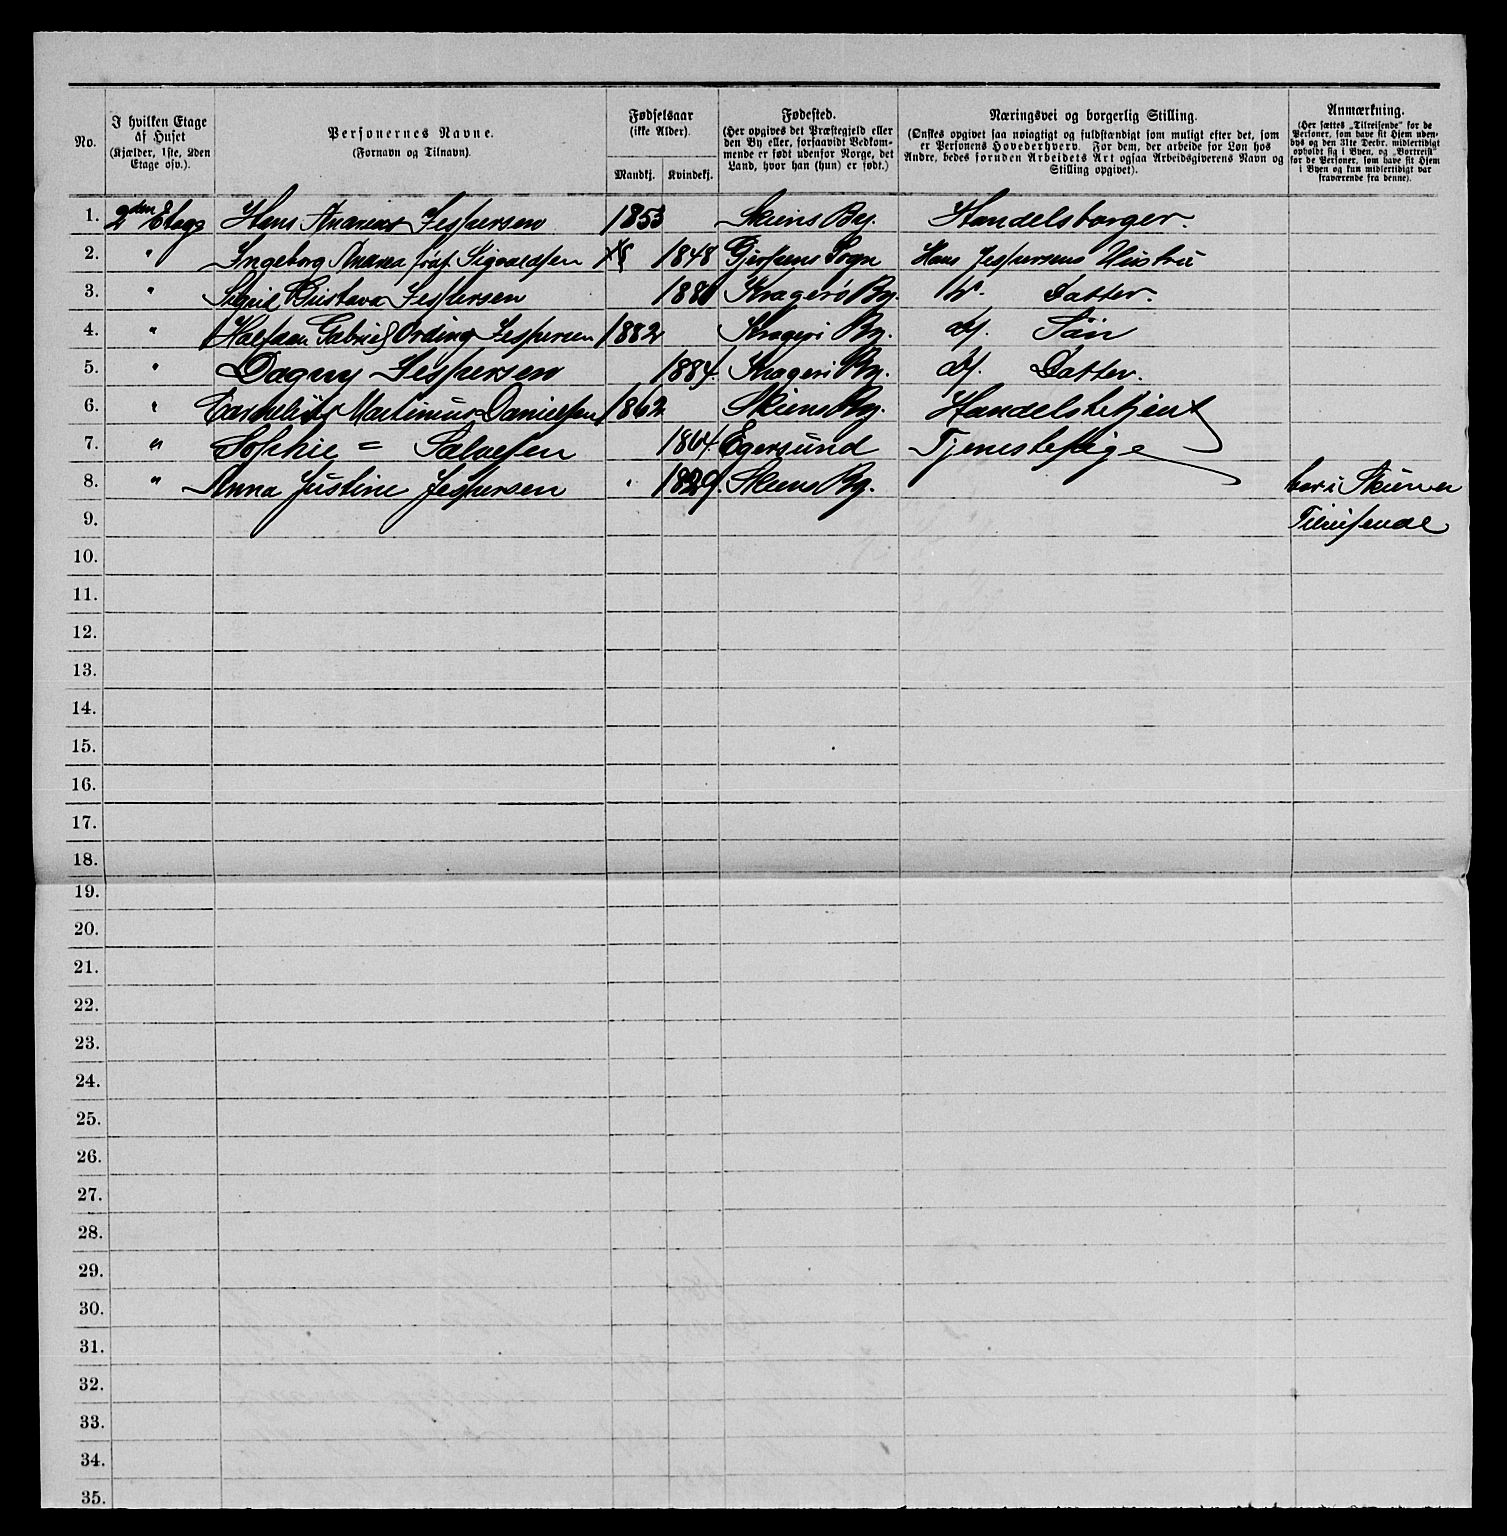 No.
I hvilken Etage af Huset (Kjælder, 1ste, 2den Etage osv.).
Personernes Navne. (Fornavn og Tilnavn).
Fødselsaar (ikke Alder).
Mandkj.
Kvindekj.
Fødested. (Her opgives det Præstegjeld eller den By eller, forsaavidt Vedkommende er født udenfor Norge, det Land, hvor han (hun) er født.)
Næringsvei og borgerlig Stilling. (Ønskes opgivet saa nøiagtigt og fuldstændigt som muligt efter det, som er Personens Hovederhverv. For dem, der arbeide for Løn hos Andre, bedes foruden Arbeidets Art ogsaa Arbeidsgiverens Navn og Stilling opgivet).
Anmærkning. (Her sættes „Tilreisende" for de Personer, som have sit Hjem udenbys og den 31te Decbr. midlertidigt opholdt sig i Byen, og „Bortreist" for de Personer, som have sit Hjem i Byen og kun midlertidigt var fraværende fra denne).
1. 2den Etage Hans Andreas Jespersen 1853 Skiens By. Handelsborger.
2. " Ingeborg Andrea født Sigvaldsen 1848 Gjerpens Sogn Hans Jespersens Hustru
3. " Gustava Jespersen 188 Kragerø By. Datter.
4. " Halfdan Gabriel Ording Jespersen 1882 Kragerø By. do. Søn
5. " Dagny Jespersen 1884 Kragerø By. do. Datter.
6. " Cornelius Martinus Danielsen 1862 Skiens By. Handelsbetjent
7. " Sophie = Salvesen 1864 Egersund Tjenestepige
8. " Anna Justine Jespersen 1829. Skiens By. bor i Skien er
9. Tilreisende
10.
11.
12.
13.
14.
15.
16.
17.
18.
19.
20.
21.
22.
23.
24.
25.
26.
27.
28.
29.
30.
31.
32.
33.
34.
35.